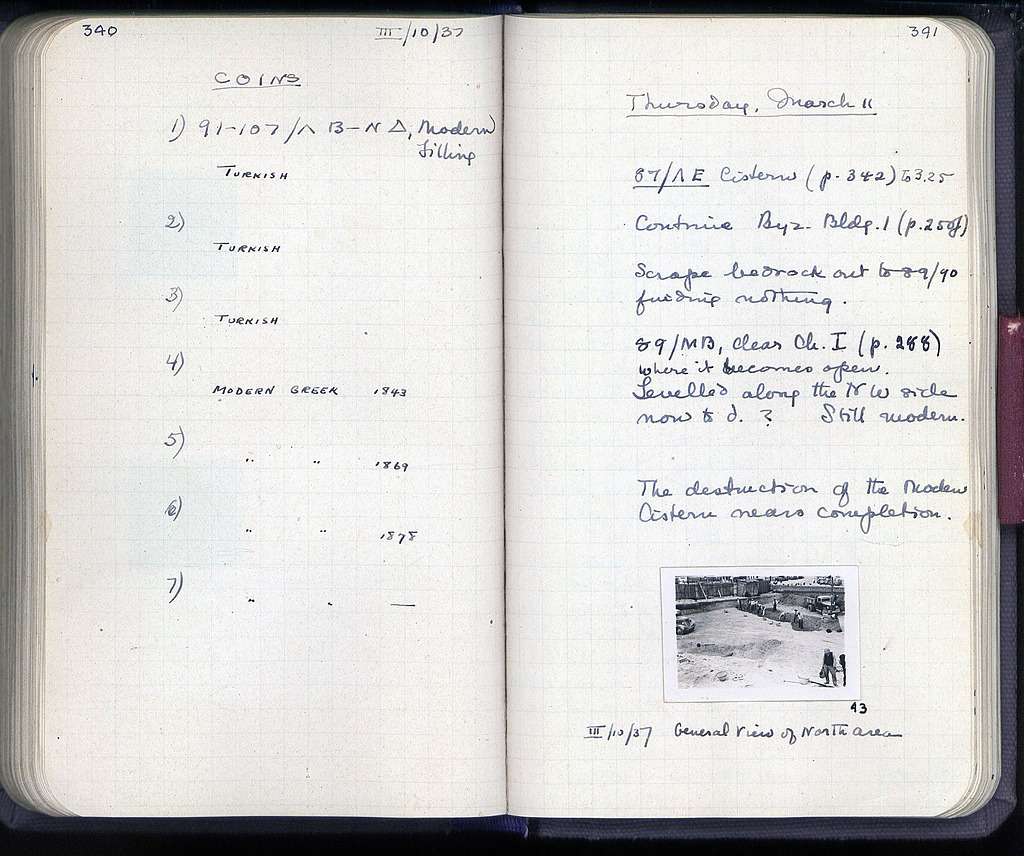 340
III/10/37
COINS
1) 91-107/Λ B-N Δ, Modern
filling
TURKISH
2)
TURKISH
3)
TURKISH
4)
MODERN GREEK 1843
5)
" " 1869
6)
" " 1878
7)
" " —
341
Thursday, March 11
87/Λ E Cistern (p. 342) to 3.25
Continue Byz. Bldg. 1 (p. 250f)
Scrape bedrock out to 89/90
finding nothing.
89/MB, clear Ch. I (p. 288)
where it becomes open.
Levelled along the NW side
now to d. ? Still modern.
The destruction of the Modern
Cistern nears completion.
43
III/10/37 General View of North area